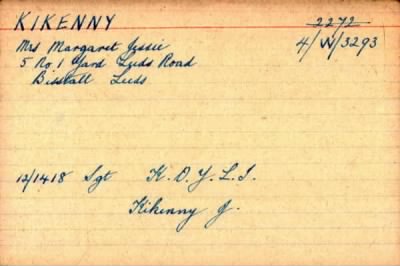 KIKENNY 2272
Mrs Margaret Jessie 4/W/3293
5 No 1 Yard Leeds Road
Birstall Leeds
12/1418 Sgt K.O.Y.L.I.
Kikenny J.